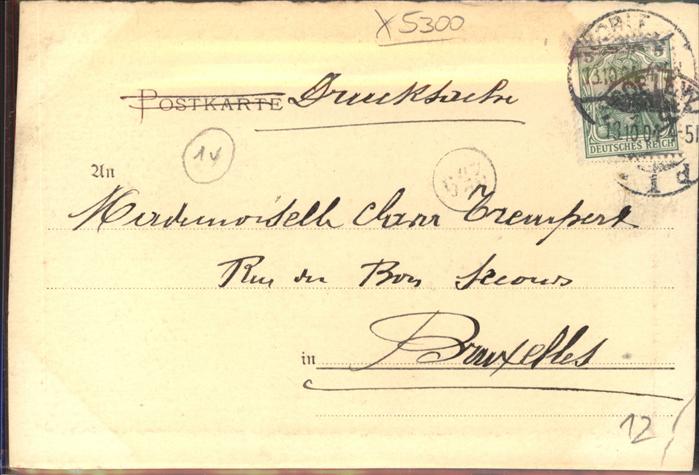 X 5300
POSTKARTE Drucksache
13.10.04
DEUTSCHES REICH
14
An
Mademoiselle Clara Trempert
Rue du Bon Secours
in Bruxelles
12